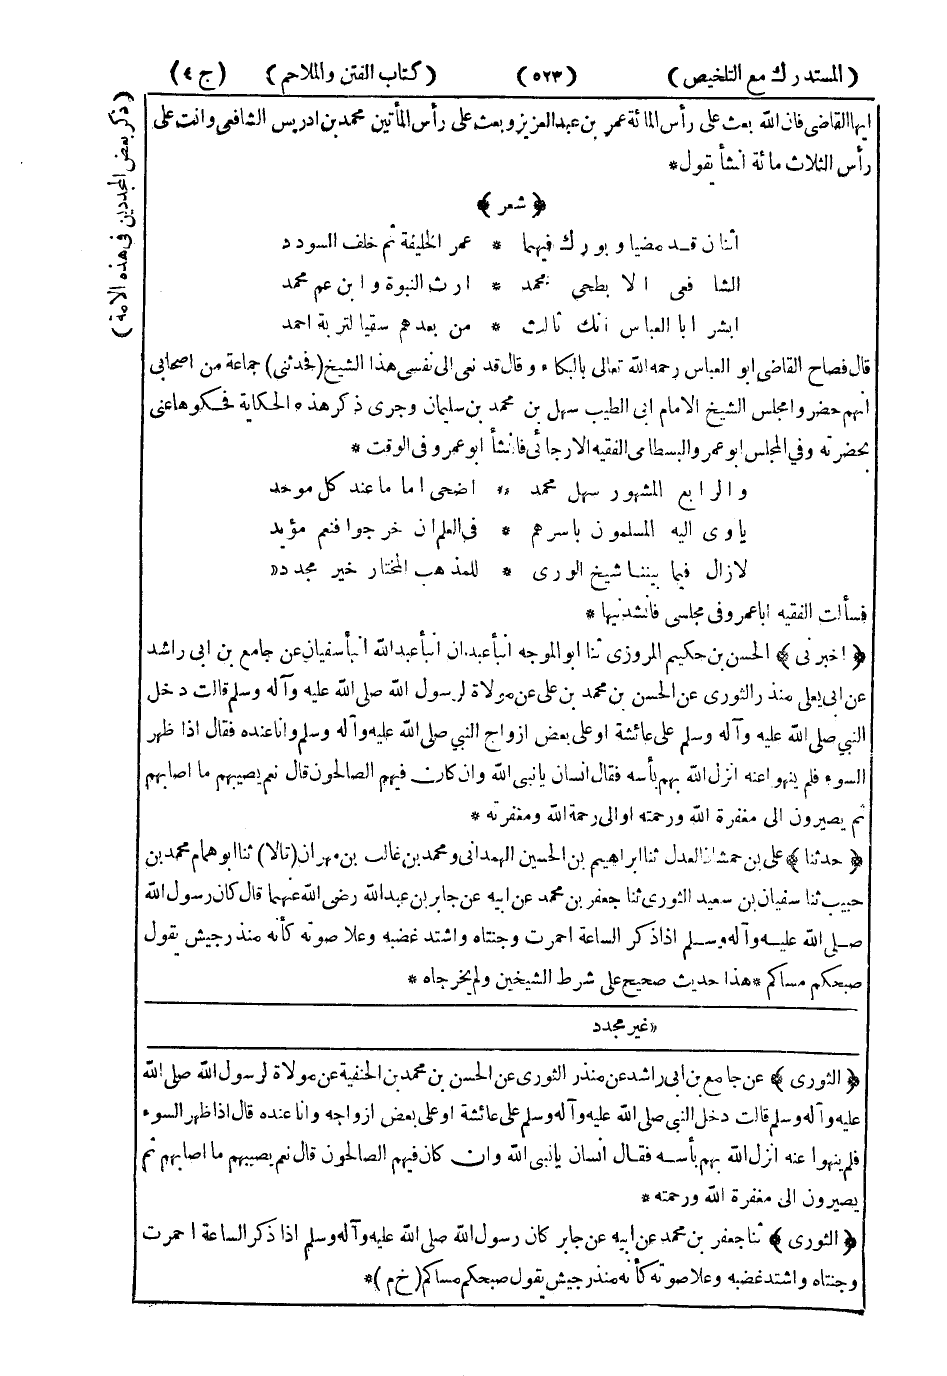 (المستدرك مع التلخيص) (٥٢٣) (كتاب الفتن والملاحم) (ج ٤)
(ذكر بعض المجددين في هذه الامة)
ايها القاضي فان الله بعث على رأس المائة عمر بن عبد العزيز وبعث على رأس المأتين محمد بن ادريس الشافعي وانت على
رأس الثلاث مائة انشأ يقول*
﴿ شعر ﴾
اثنان قد مضيا وبورك فيهما * عمر الخليفة ثم خلف السودد
الشافعي الابطحي محمد * ارث النبوة وابن عم محمد
ابشر ابا العباس انك ثالث * من بعدهم سقيا لتربة احمد
قال فصاح القاضي ابو العباس رحمه الله تعالى بالبكاء وقال قد نعى الى نفسي هذا الشيخ (فحدثني) جماعة من اصحابي
انهم حضروا مجلس الشيخ الامام ابي الطيب سهل بن محمد بن سليمان وجرى ذكر هذه الحكاية فحكوها عني
بحضرته وفي المجلس ابو عمرو البسطامي الفقيه الارجائي فانشأ ابو عمرو في الوقت *
والرابع المشهور سهل محمد * اضحى اماما عند كل موحد
ياوى اليه المسلمون باسرهم * في العلم ان خرجوا فنعم مؤيد
لازال فيما بيننا شيخ الورى * للمذهب المختار خير مجدد «
فسألت الفقيه ابا عمرو في مجلسي فانشدنيها *
﴿ اخبرني ﴾ الحسن بن حكيم المروزي ثنا ابو الموجه انبأ عبدان انبأ عبد الله انبأ سفيان عن جامع بن ابي راشد
عن ابي يعلى منذر الثوري عن الحسن بن محمد بن علي عن مولاة لرسول الله صلى الله عليه وآله وسلم قالت دخل
النبي صلى الله عليه وآله وسلم على عائشة او على بعض ازواج النبي صلى الله عليه وآله وسلم وانا عنده فقال اذا ظهر
السوء فلم ينهوا عنه انزل الله بهم بأسه فقال انسان يا نبي الله وان كان فيهم الصالحون قال نعم يصيبهم ما اصابهم
ثم يصيرون الى مغفرة الله ورحمته او الى رحمة الله ومغفرته *
﴿ حدثنا ﴾ علي بن حمشاذ العدل ثنا ابراهيم بن الحسين الهمداني ومحمد بن غالب بن مهران (قالا) ثنا ابو همام محمد بن
حبيب ثنا سفيان بن سعيد الثوري ثنا جعفر بن محمد عن ابيه عن جابر بن عبد الله رضي الله عنهما قال كان رسول الله
صلى الله عليه وآله وسلم اذا ذكر الساعة احمرت وجنتاه واشتد غضبه وعلا صوته كأنه منذر جيش يقول
صبحكم مساكم * هذا حديث صحيح على شرط الشيخين ولم يخرجاه *
«غير مجدد
﴿ الثوري ﴾ عن جامع بن ابي راشد عن منذر الثوري عن الحسن بن محمد بن الحنفية عن مولاة لرسول الله صلى الله
عليه وآله وسلم قالت دخل النبي صلى الله عليه وآله وسلم على عائشة او على بعض ازواجه وانا عنده قال اذا ظهر السوء
فلم ينهوا عنه انزل الله بهم بأسه فقال انسان يا نبي الله وان كان فيهم الصالحون قال نعم يصيبهم ما اصابهم ثم
يصيرون الى مغفرة الله ورحمته *
﴿ الثوري ﴾ ثنا جعفر بن محمد عن ابيه عن جابر كان رسول الله صلى الله عليه وآله وسلم اذا ذكر الساعة احمرت
وجنتاه واشتد غضبه وعلا صوته كأنه منذر جيش يقول صبحكم مساكم (خ م)*